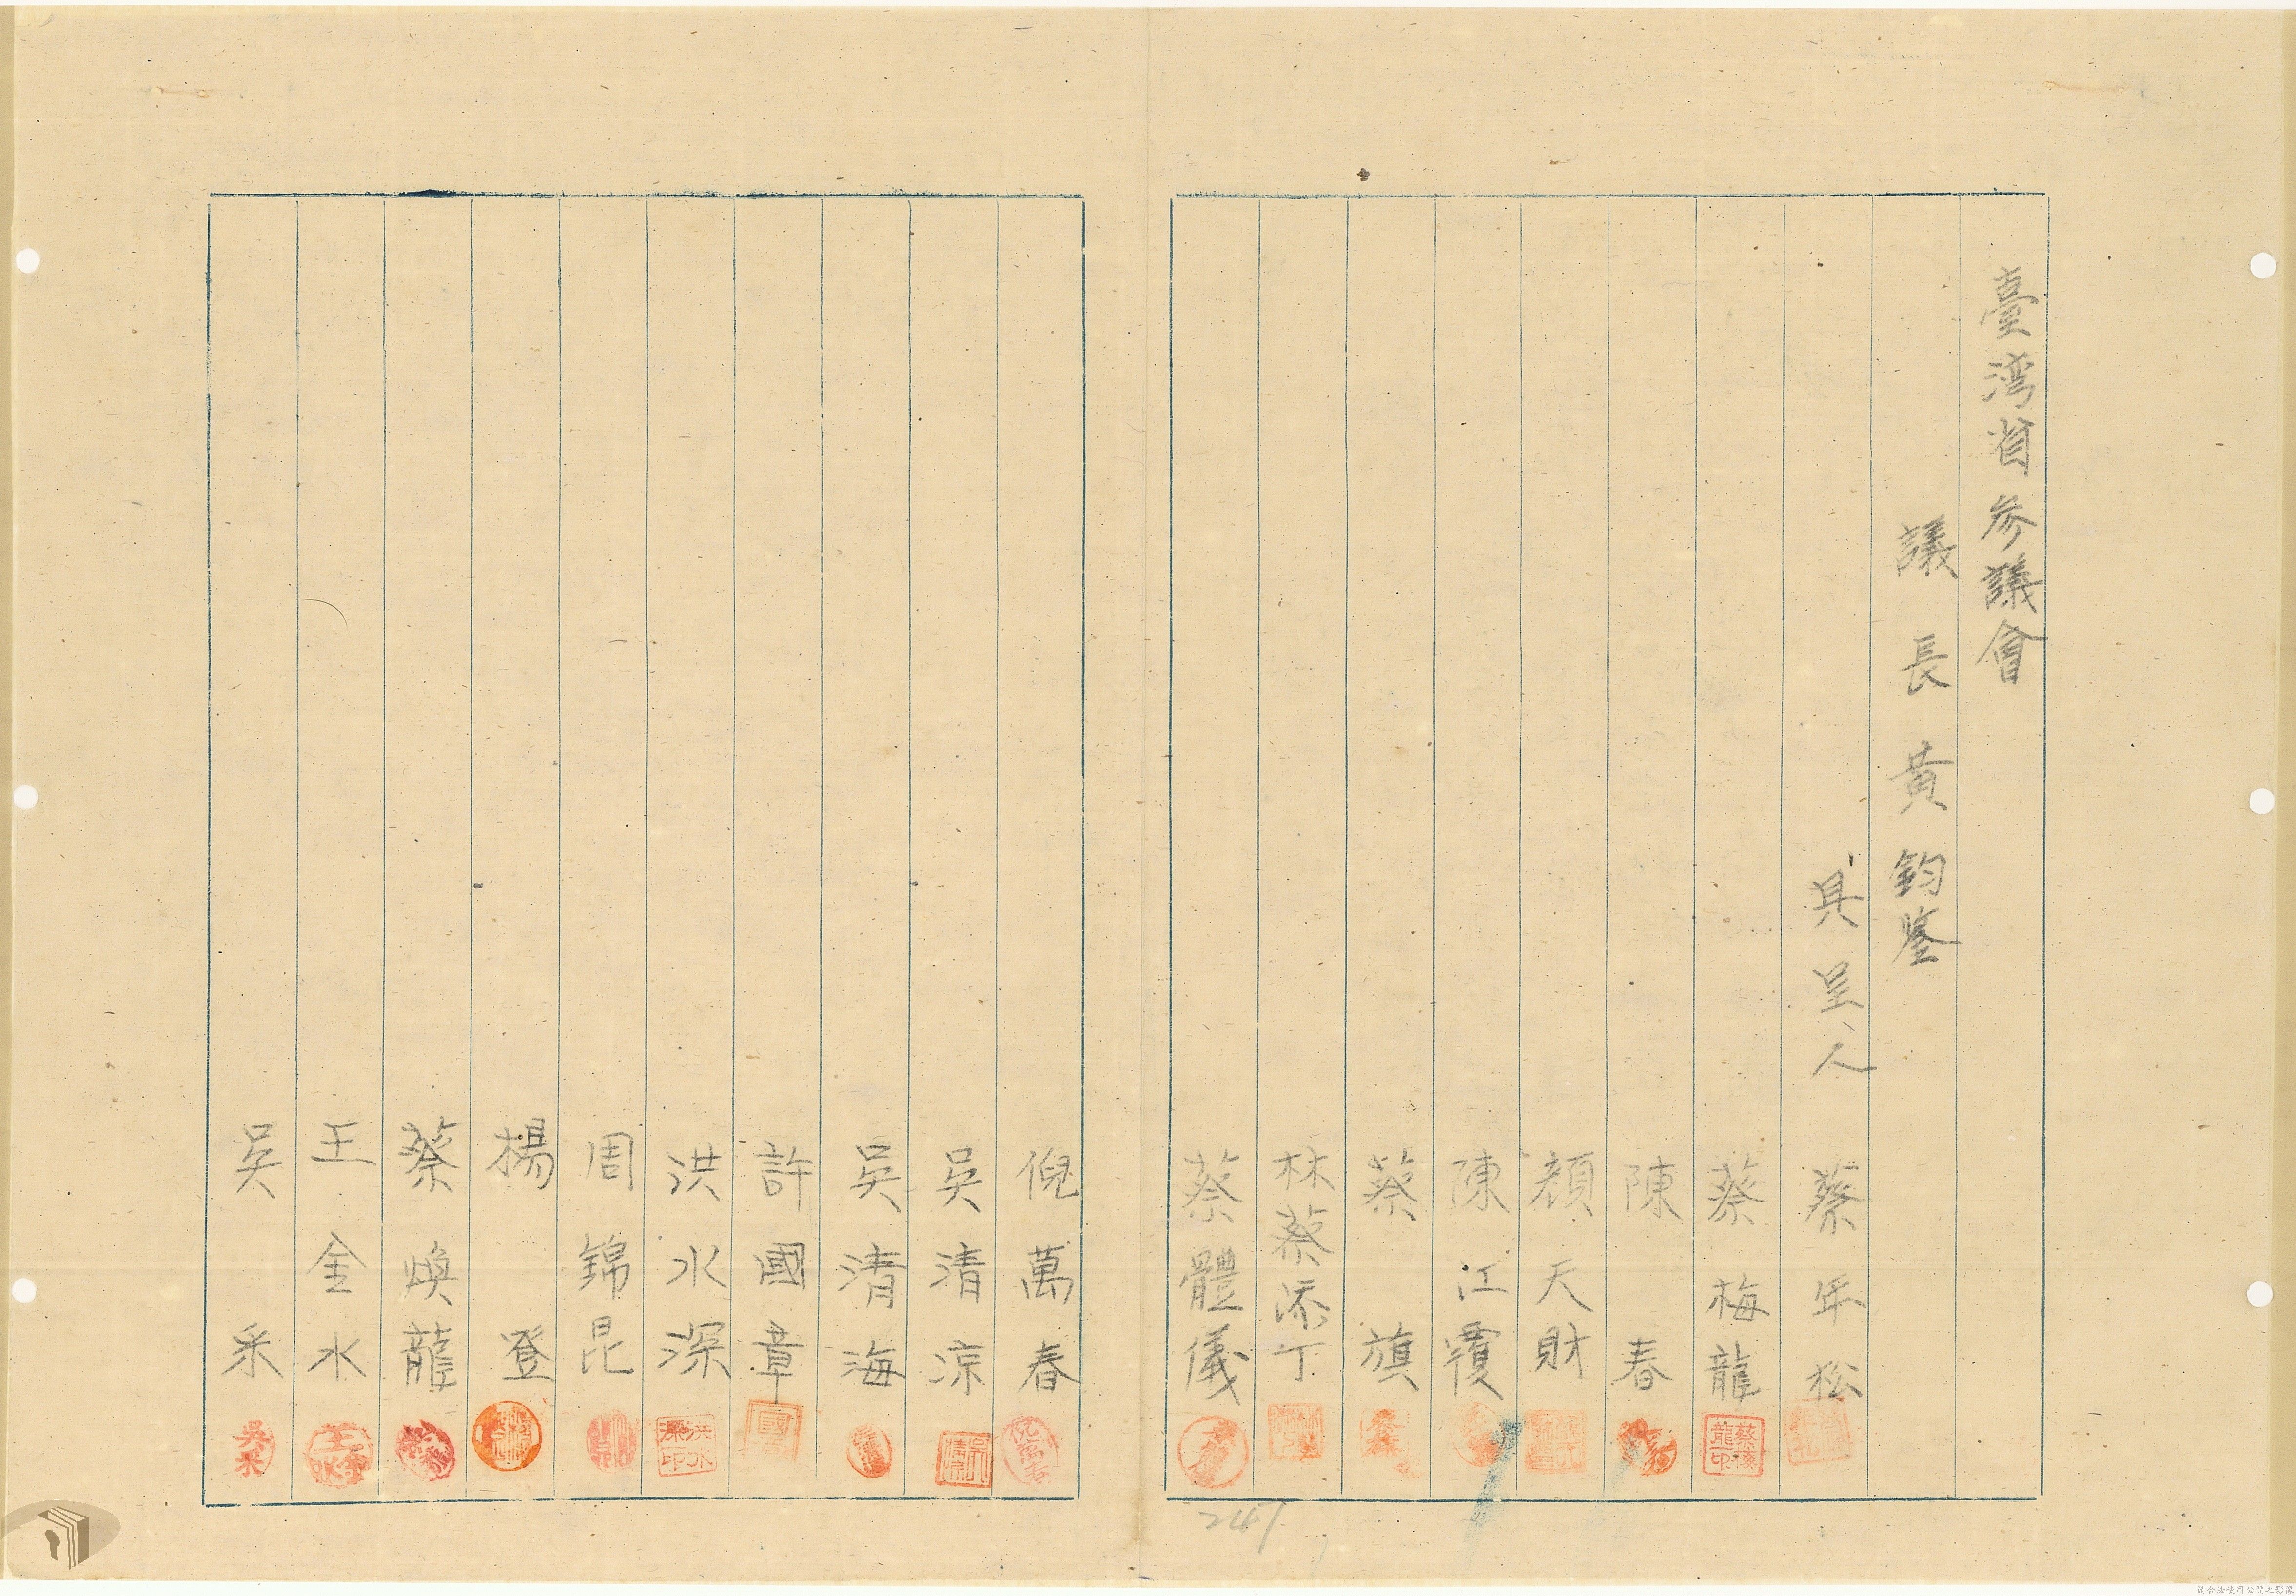 臺湾省参議會
議長黃鈞鑒
具呈人 蔡年松
蔡梅龍
陳春
顏天財
陳江覆
蔡旗
林蔡添丁
蔡體儀
倪萬春
吳清凉
吳清海
許國章
洪水深
周錦昆
楊登
蔡煥龍
王金水
吳釆
241
請合法使用公開之影像